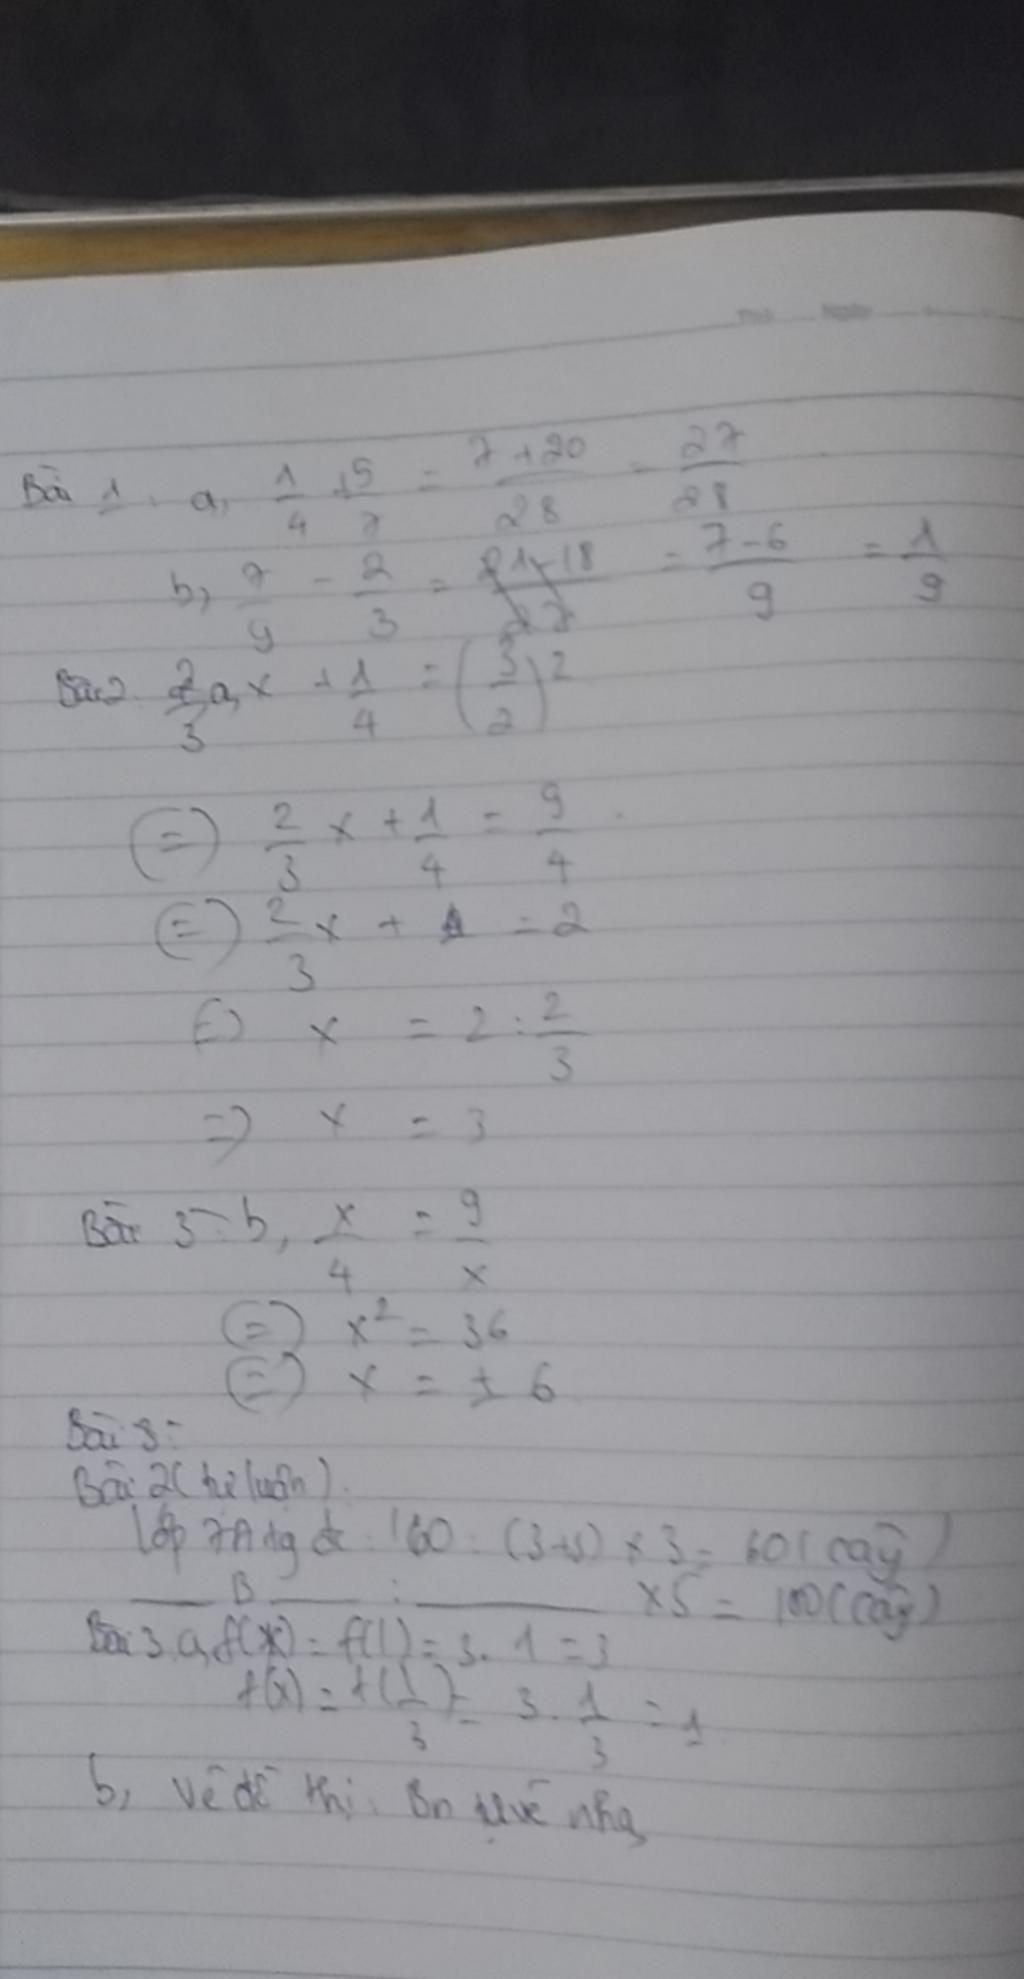 Bài 1. a, 1/4 + 5/7 = (7+20)/28 = 27/28
b, 7/9 - 2/3 = = (7-6)/9 = 1/9
Bài 2. a, 2/3 x + 1/4 = (3/2)^2
(=) 2/3 x + 1/4 = 9/4
(=) 2/3 x = 2
(=) x = 2 : 2/3
=) x = 3
Bài b, x/4 = 9/x
(=) x^2 = 36
(=) x = ± 6
Bài
Bài 2 (tự luận).
Lớp 7A 160 : (3+5) x 3 = 60 (cây)
B : x5 = 100 (cây)
Bài 3. a, f(x) = f(1) = 3. 1 = 3
f(x) = f(1/3) = 3. 1/3 = 1
b, Vẽ đồ thị: Bn tự vẽ nha